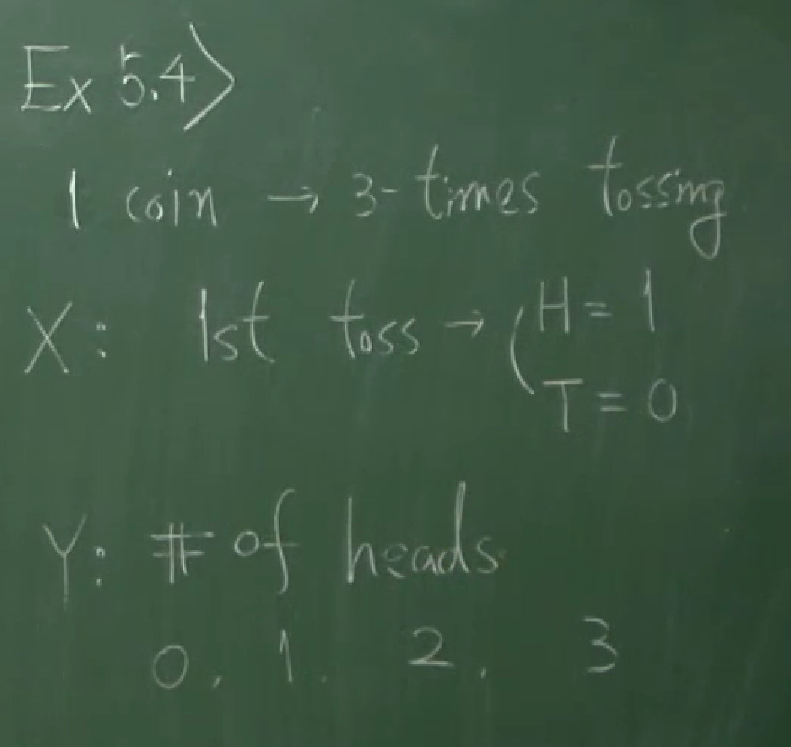 Ex 5.4>
1 coin → 3-times tossing
X: 1st toss → ( H = 1
T = 0
Y: # of heads
0, 1, 2, 3